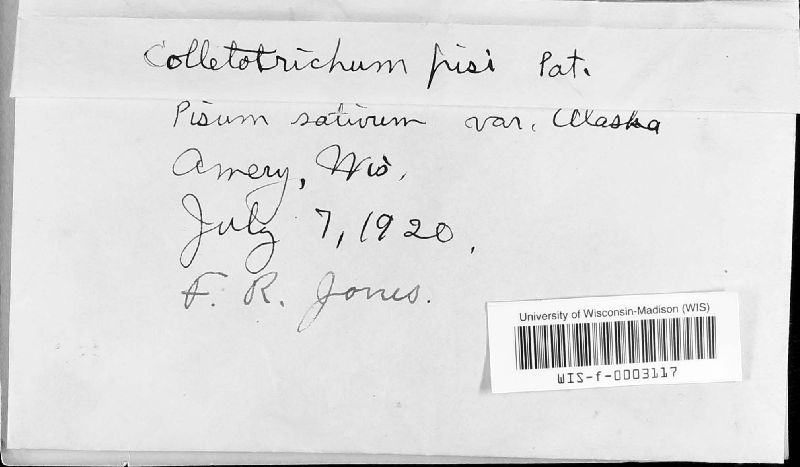 Colletotrichum pisi Pat.
Pisum sativum var. Alaska
Amery, Wis.
July 7, 1920.
F. R. Jones.
University of Wisconsin-Madison (WIS)
WIS-f-0003117